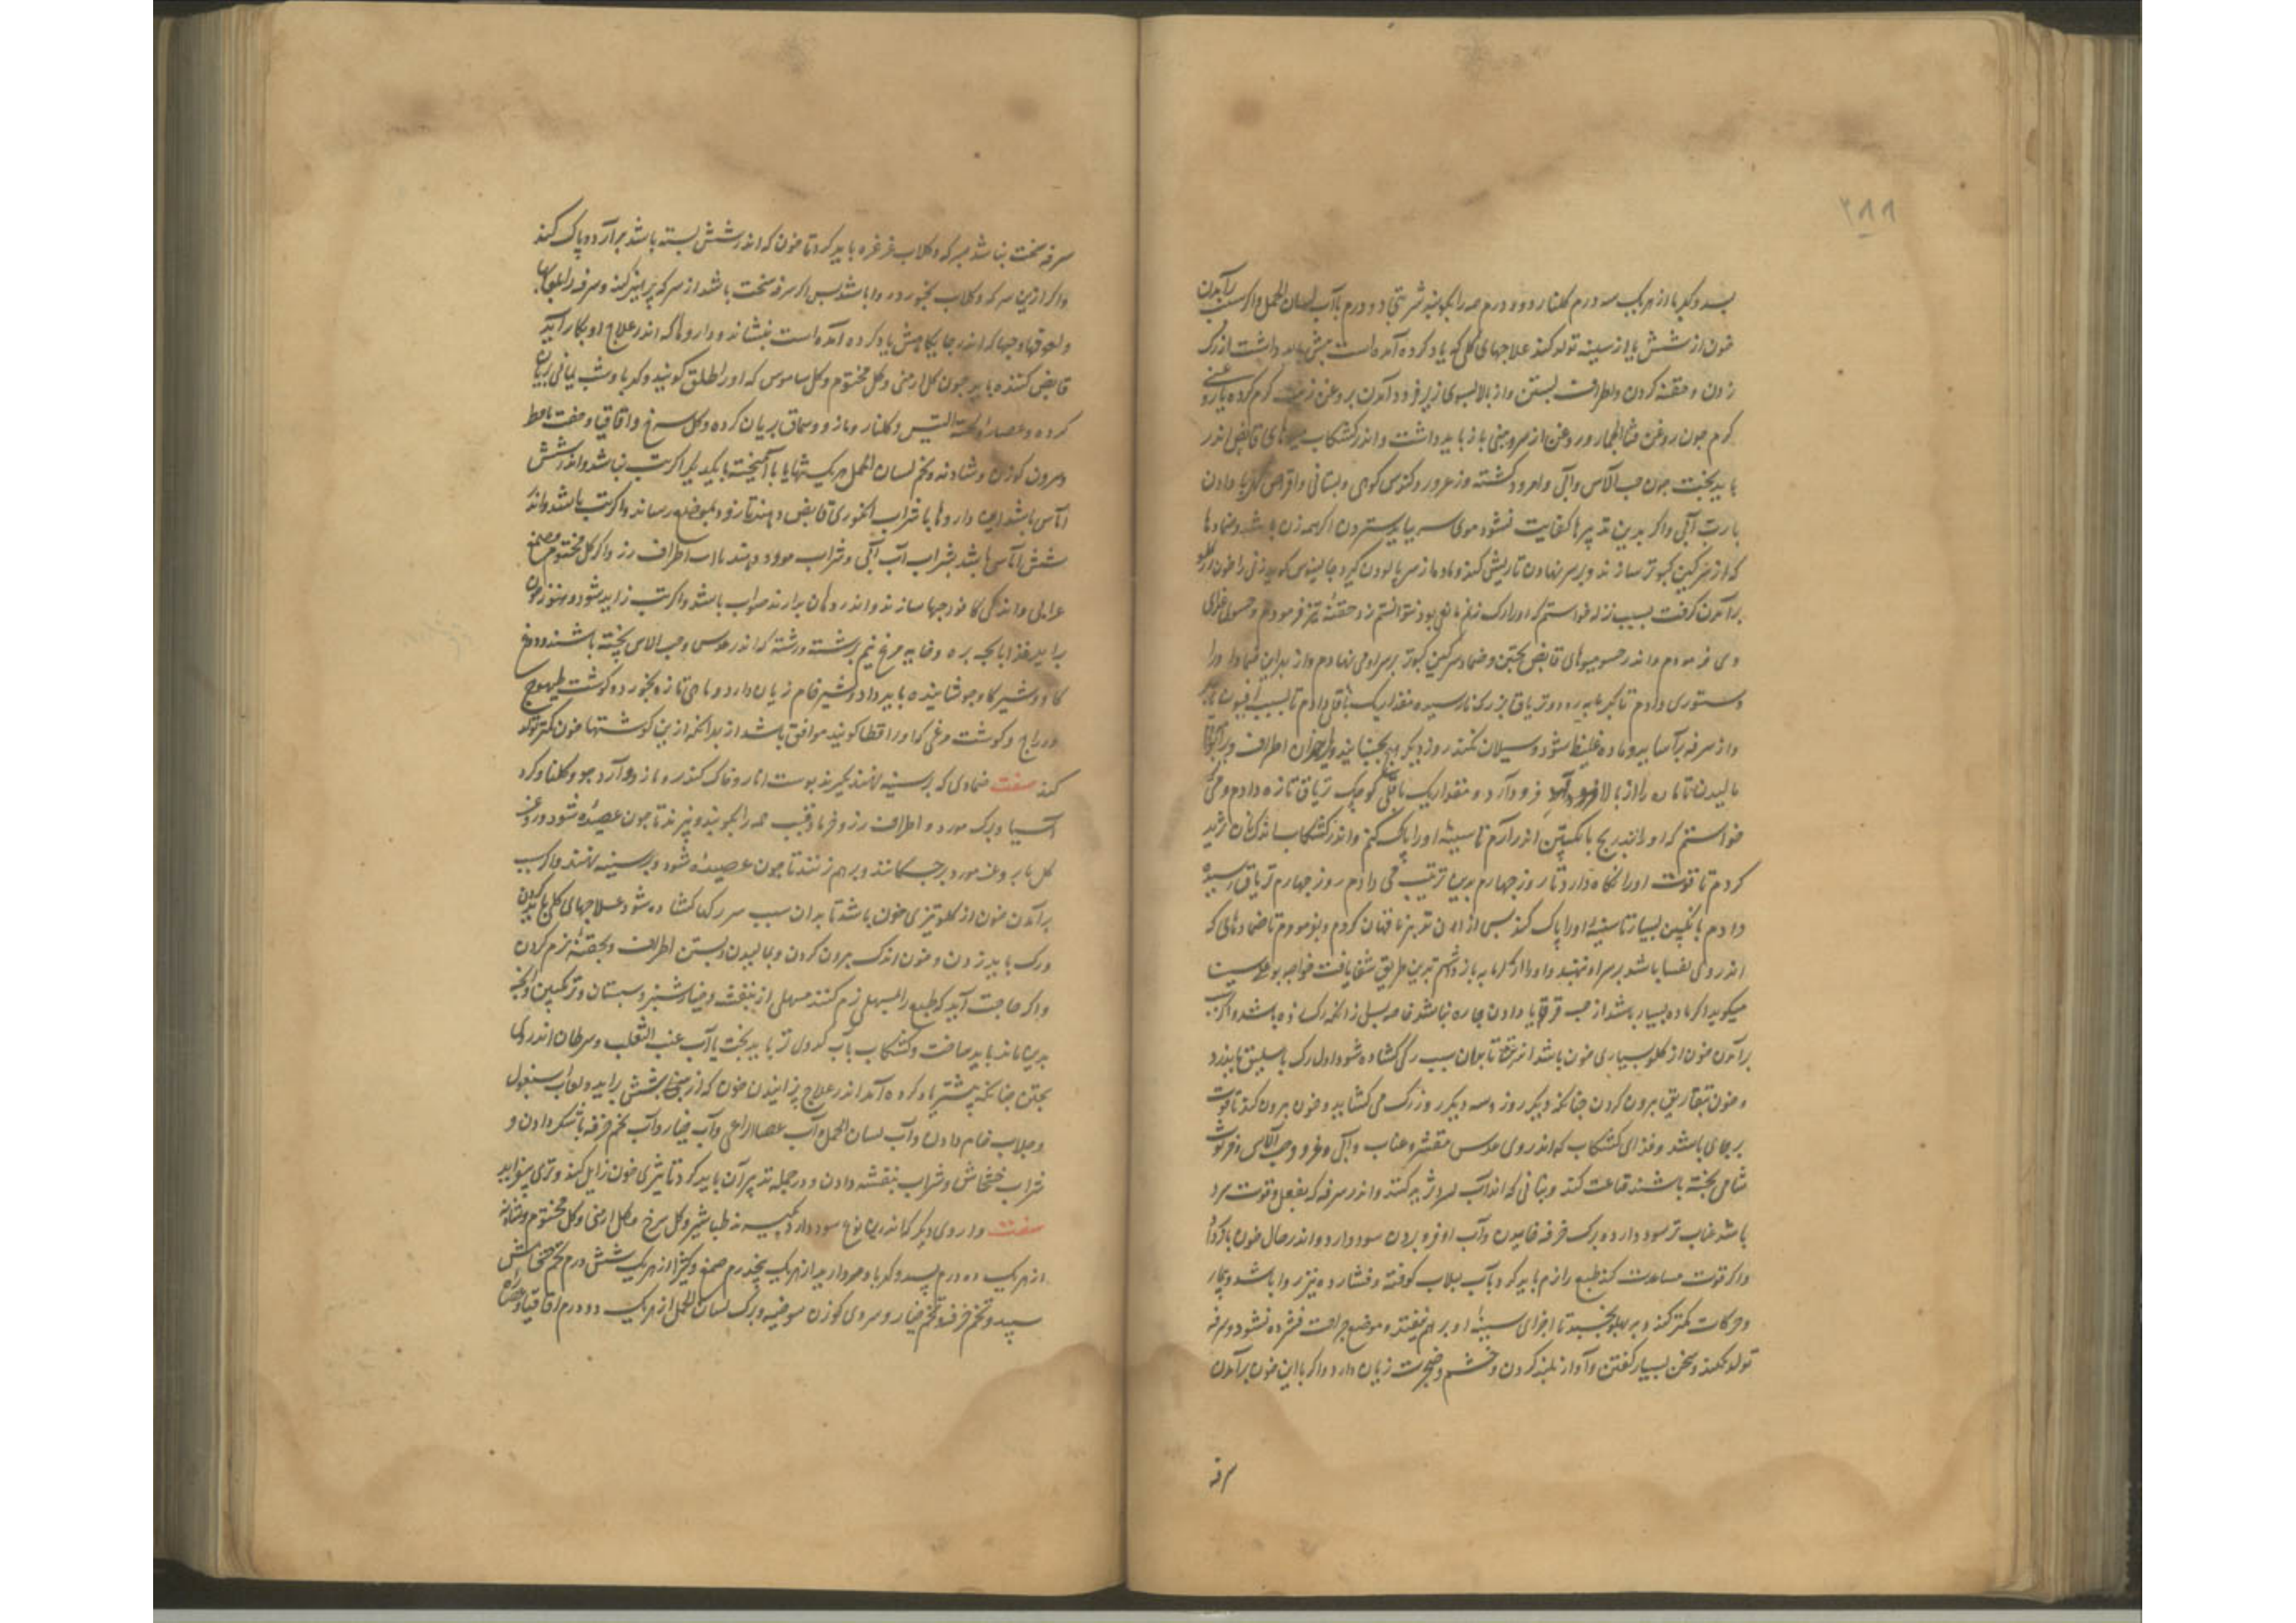 ۲۸۸
بسد و کهربا از هریک سه درم کلنار دو درم همه را بکوبند شربتی دو درم باآب لسان الحمل واکر سبب برآمدن
خون از شش یا از سینه تولد کند علاجهای کلی که یاد کرده آمده است پیش باید داشت از رک
زدن و حقنه کردن و اطراف بستن و از بالا بسوی زیر فرود آمدن بروغن زیت کرم کرده یا روغنی
کرم چون روغن قثاالحمار و روغن از سر و بینی باز باید داشت و اندر کشکاب میوهای قابض اندر
باید پخت چون حب الآس وآبی و امرود کشته و زعرور و کنوس کوهی و بستانی و اقراص کهربا دادن
با رب آبی واکر بدین تدبیرها کفایت نشود موی سر بباید ستردن اکر همه زن باشد و ضمادها
که از سرکین کبوتر سازند و بر سر نهادن تا ریش کند و ماده از سر پالودن کیرد جالینوس کوید زنی را خون از کلو
برآمدن کرفت بسبب نزله خواستم که او را رک زنم مانعی بود نتوانستم زد حقنه تیز فرمودم و حسوها غذای
وی فرمودم و اندر حسو میوهای قابض پختن و ضماد سرکین کبوتر بر سر او می نهادم و از بعد این ضماد او را
دستوری دادم تا بکرمابه رود و تریاق بزرک نارسیده مقدار یک باقلی دادم تا بسبب افیون
و از سرفه برآساید و ماده غلیظ شود و سیلان نکند روز دیکر هیچ نجنبانید و اطراف
مالیدن تا ماده را از بالا فرود آرد و مقدار یک باقلی کوچک تریاق تازه دادم و می
خواستم که او را بتدریج با انکبین اندر آرم تا سینه او را پاک کنم و اندر کشکاب اندکی نان ثرید
کردم تا قوت او را نکاه دارد تا روز چهارم بدین ترتیب می دادم روز چهارم تریاق رسیده
دادم باانکبین بسیار تا سینه او را پاک کند پس از این تدبیر ناقهان کردم و بفرمودم تا ضمادهای که
اندر وی تفسیا باشد بر سر او نهند و او را از کرمابه باز داشتم بدین طریق شفا یافت خواجه بوعلی سینا
میکوید اکر ماده بسیار باشد از حب قوقایا دادن چاره نباشد خاصه پس از آنکه رک زده باشد واکر سبب
برآمدن خون از کلو بسیاری خون باشد اندر تن تا بدان سبب رکی کشاده شود اول رک باسلیق باید زد
و خون بتفاریق برون کردن چنانکه دیکر روز و سه دیکر روز رک می کشاید و خون برون کند تا قوت
بر جای باشد و غذای کشکاب که اندر وی عدس مقشر و عناب وآبی و امرود و حب الآس و خرنوب
شامی پخته باشند قناعت کند و بنانی که اندر آب سرد ثرید کنند و اندر سرفه که بفعل و قوت سرد
باشد عناب تر سود دارد و برک خرفه خاییدن و آب او فرو بردن سود دارد و اندر حال خون باز دارد
واکر قوت مساعدت کند طبع را نرم باید کرد و بآب بلاب کوفته و فشارده نیز روا باشد و بیمار
حرکات کمتر کند و بر پهلو بخسبد تا اجزای سینه او بر هم نیفتد و موضع جراحت فشرده نشود و سرفه
تولد نکند و سخن بسیار کفتن وآواز بلند کردن و خشم و ضجرت زیان دارد واکر بااین خون برآمدن
سرفه
سرفه سخت نباشد بسرکه و کلاب غرغره باید کرد تا خون که اندر شش بسته باشد برآرد و پاک کند
واکر ازین سرکه و کلاب بخورد روا باشد پس اکر سرفه سخت باشد از سرکه پرهیز کند و سرفه را بلعابها
و لعوقها و حبها که اندر جایکاهش یاد کرده آمده است بنشاند و داروها که اندر علاج او بکار آید
قابض کننده باید چون کل ارمنی و کل مختوم و کل ساموس که او را طلق کویند و کهربا و شب یمانی بریان
کرده و عصاره لحیة التیس و کلنار و مازو و سماق بریان کرده و کل سرخ و اقاقیا و جفت بلوط
و سرون کوزن و شادنه و تخم لسان الحمل هر یک تنها یا باآمیخته بایکدیکر اکر تب نباشد و اندر شش
آماس باشد این داروها با شراب انکوری قابض دهند تا زود بموضع رساند واکر تب باشد و اندر
شش آماس باشد بشراب آب آبی و شراب مورد دهند باآب اطراف رز واکر کل مختوم و صمغ
عرابی و اندکی کافور حبها سازند و اندر دهان بدارند صواب باشد واکر تب زاید شود و هنوز خون
برآید غذا پاچه بره و خایه مرغ نیم برشت و رشته که اندر عدس و حب الاس پخته باشند و دوغ
کاو و شیر کاو جوشانیده باید داد و شیر خام زیان دارد و ماهی تازه بخورد و کوشت طیهوج
و دراج و کوشت مرغی که او را قطا کویند موافق باشد از بهر آنکه ازین کوشتها خون کمتر تولد
کند صفت ضمادی که بر سینه نهند بکیرند پوست انار و خاک کندر و مازو و آرد جو و کلنار و کرد
آسیا و برک مورد و اطراف رز و خرما و قسب همه را بکوبند و بپزند تا چون عصیده شود و روغن
کل یا روغن مورد بر چکانند و بر هم زنند تا چون عصیده شود و بر سینه نهند واکر سبب
برآمدن خون از کلو تیزی خون باشد تا بدان سبب سر رکها کشاده شود علاجهای کلی باید کردن
و رک باید زدن و خون اندک برون کردن و مالیدن و بستن اطراف و بحقنه نرم کردن
واکر حاجت آید که طبع را بمسهل نرم کنند مسهل از بنفشه و خیارشنبر و سبستان و ترنکبین وآنچه
بدین ماند باید ساخت و کشکاب بآب کدوی تر باید پخت یا آب عنب الثعلب و سرطان اندر وی
پختن چنانکه پیشتر یاد کرده آمد اندر علاج بزاییدن خون که از رکهای شش براید و لعاب اسبغول
و جلاب خام دادن و آب لسان الحمل و آب عصاالراعی و آب خیار و آب تخم خرفه باشکر دادن و
شراب خشخاش و شراب بنفشه دادن و در جمله تدبیر آن باید کرد تا تیزی خون زایل کند و تری بیفزاید
صفت داروی دیکر که اندرین نوع سود دارد بکیرند طباشیر و کل سرخ و کل ارمنی و کل مختوم و شادنه
از هریک ده درم بسد و کهربا و مروارید از هریک پنج درم صمغ و کتیرا از هریک شش درم تخم خشخاش
سپید و تخم خرفه و تخم خیار و سروی کوزن سوخته و برک لسان الحمل از هریک دو درم اقاقیا و عصاره